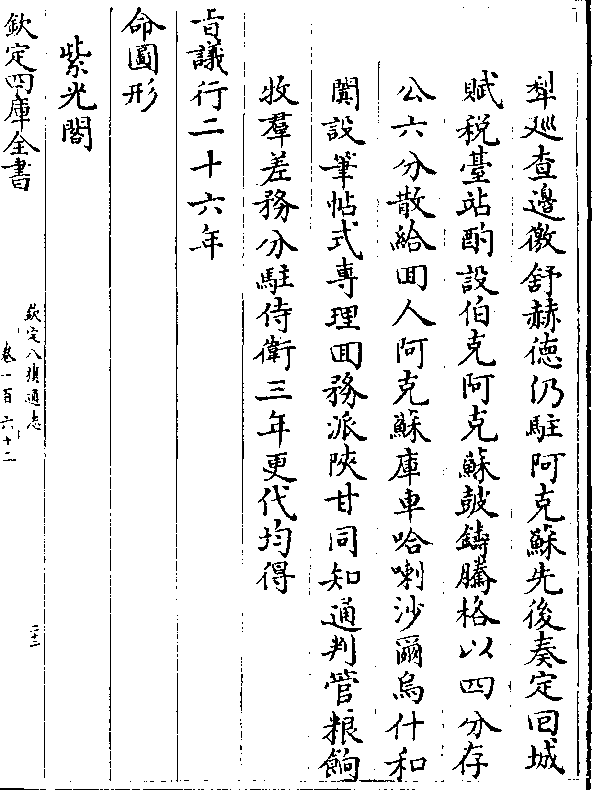 犁廵查邉徼舒赫徳仍駐阿克蘇先後奏定囘城
賦税臺站酌設伯克阿克蘇皷鑄騰格以四分存
公六分散給囬人阿克蘇庫車哈喇沙爾烏什和
闐設筆帖式專理囬務派陜甘同知通判管粮餉
牧羣差務分駐侍衛三年更代均得
㫖議行二十六年
命圖形
紫光閣
欽定四庫全書
欽定八旗通志
卷一百六十二
二十二